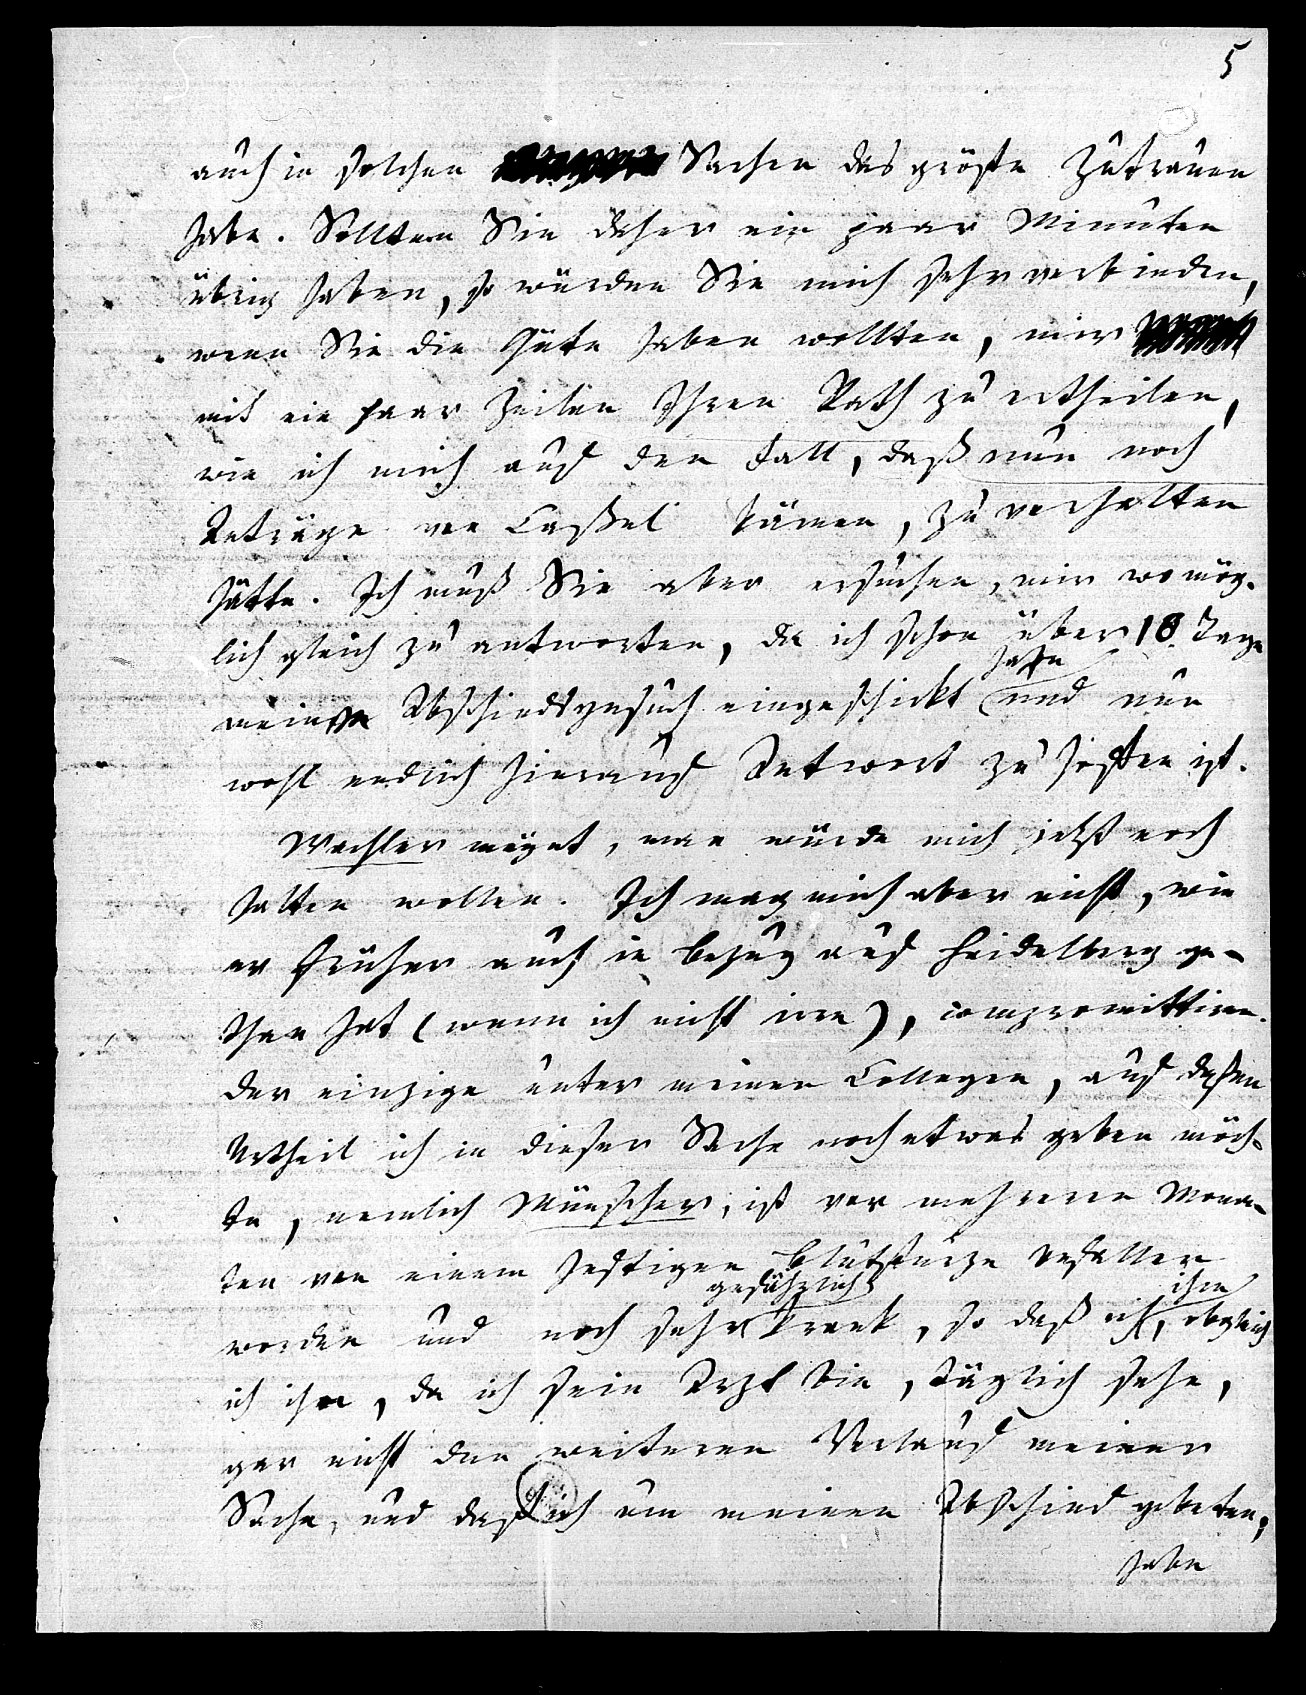 5
auch in solchen Sachen das gröste Zutrauen
habe. Sollten Sie daher ein paar Minuten
übrig haben, so würden Sie mich sehr verbinden,
wenn Sie die Güte haben wollten, mir
mit ein paar Zeilen Ihren Rath zu ertheilen,
wie ich mich auf den Fall, daß nun noch
Anträge von Caßel kämen, zu verhalten
hätte. Ich muß Sie aber ersuchen, mir womög-
lich gleich zu antworten, da ich schon über 18 Tage
habe
mein Abschiedsgesuch eingeschickt und nun
wohl endlich hierauf Antwort zu hoffen ist.
Wachler meynt, man würde mich jetzt noch
halten wollen. Ich mag mich aber nicht, wie
er früher auch in Bezug auf Heidelberg ge-
than hat (wenn ich nicht irre), compromittiren.
Der einzige unter meinen Collegen, auf deßen
Urtheil ich in dieser Sache noch etwas geben möch-
te, nemlich Münscher, ist vor mehreren Mona-
ten von einem heftigen Blutsturze befallen
gefährlich ihm
worden und noch sehr krank, so daß ich, obgleich
ich ihn, da ich sein Arzt bin, täglich sehe,
gar nicht den weiteren Verlauf meiner
Sache, und daß ich um meinen Abschied gebeten
habe